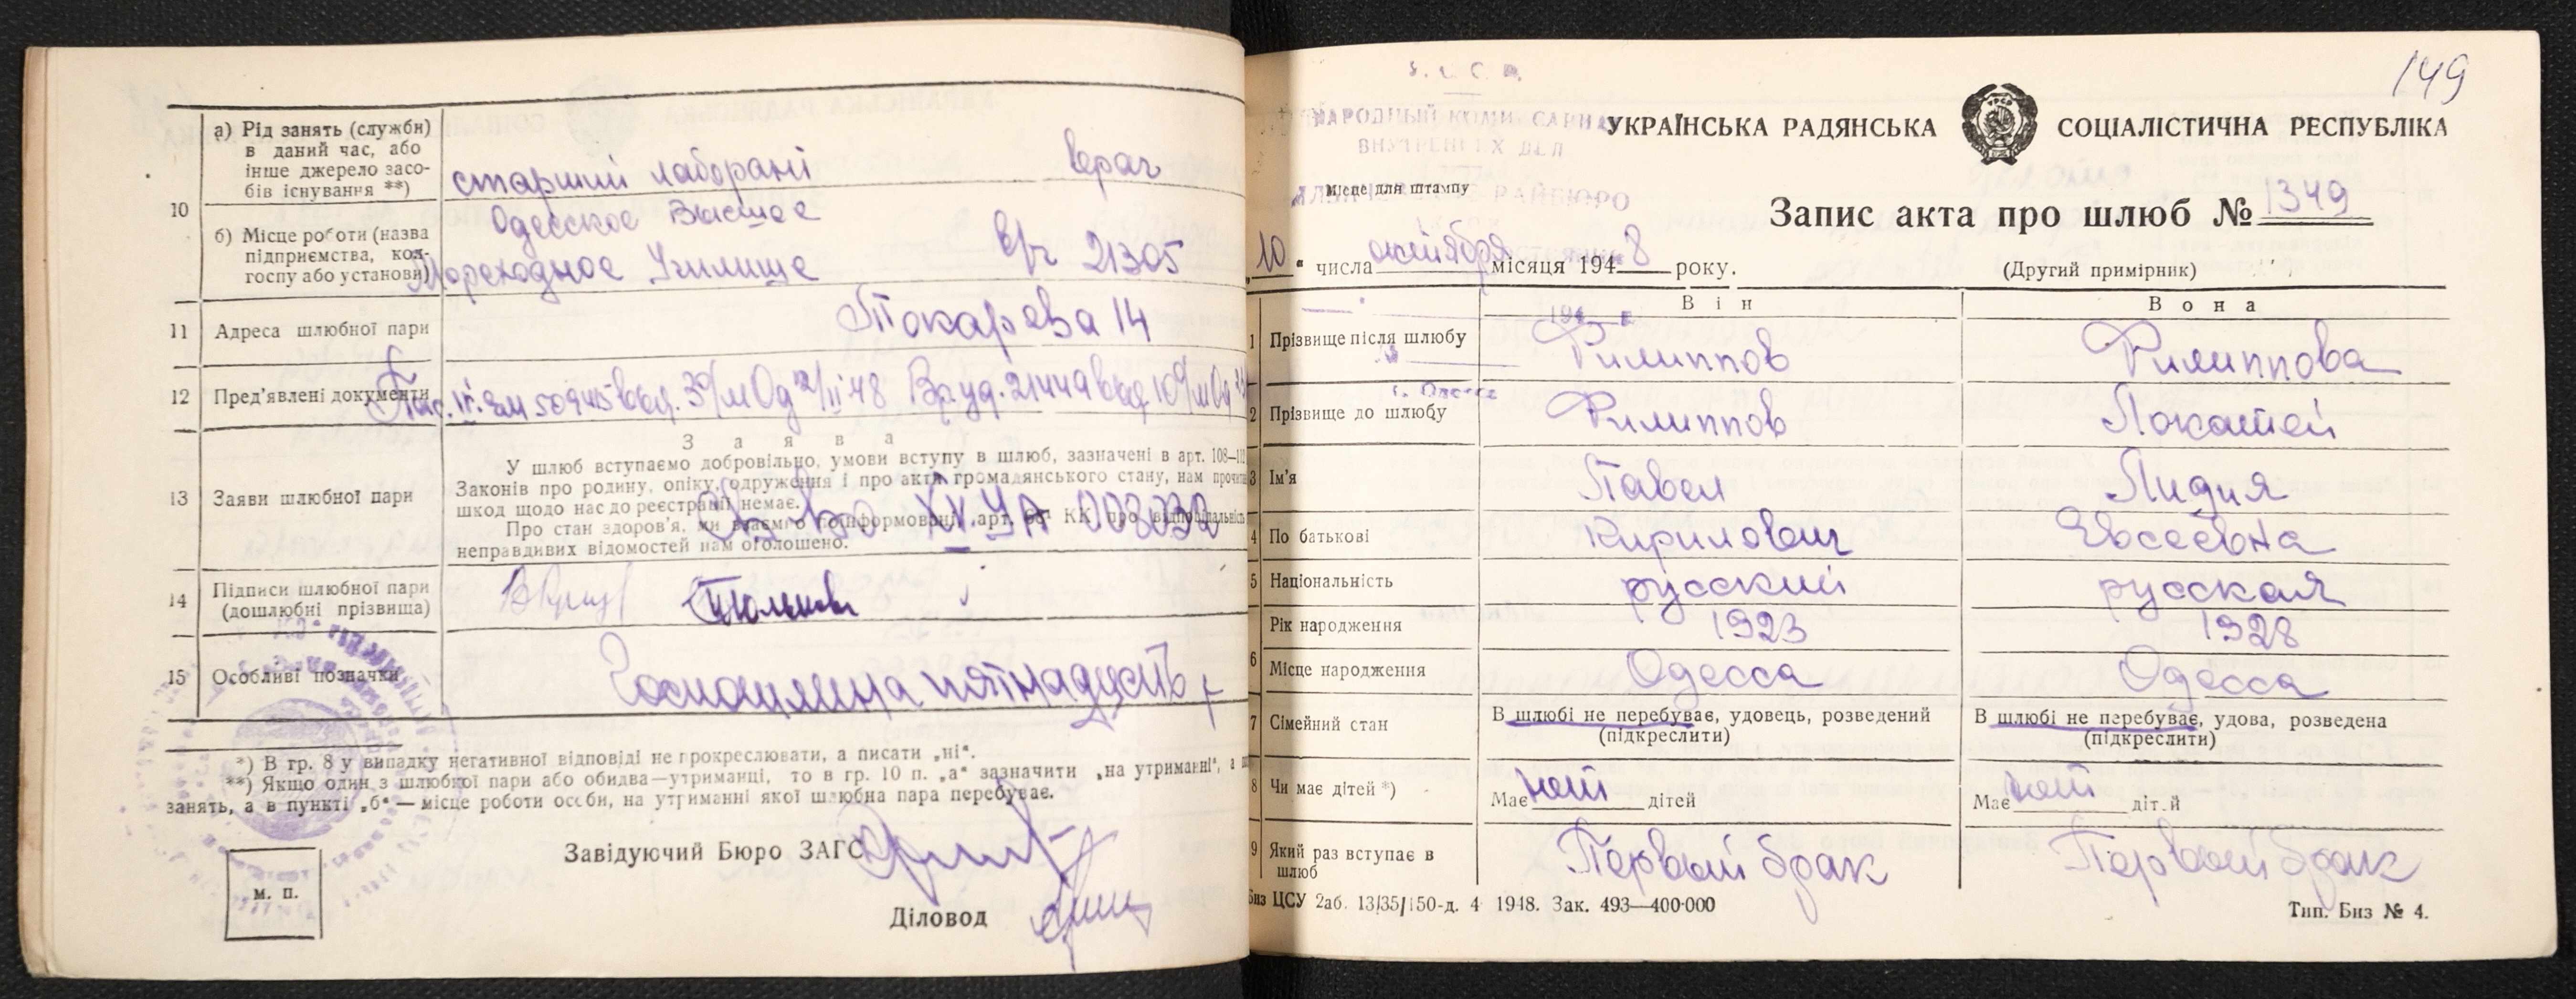 10
а) Рід занять (служби)
в даний час, або
інше джерело засо-
бів існування **)
старший лаборант
врач
б) Місце роботи (назва
підприємства, кол-
госпу або установи)
Одесское Высшее
Мореходное Училище
в/ч 21305
11 Адреса шлюбної пари
Токарева 14
12 Пред'явлені документи
13 Заяви шлюбної пари
З а я в а
У шлюб вступаємо добровільно, умови вступу в шлюб, зазначені в арт. 108—
Законів про родину, опіку, одруження і про акти громадянського стану, нам
шкод щодо нас до реєстрації немає.
Про стан здоров'я, ми взаємно поінформовані, арт. КК про
неправдивих відомостей нам оголошено.
XX. УР 003032
14 Підписи шлюбної пари
(дошлюбні прізвища)
15 Особливі позначки
Госпошлина пятнадцать р
*) В гр. 8 у випадку негативної відповіді не прокреслювати, а писати „ні“.
**) Якщо один з шлюбної пари або обидва—утриманці, то в гр. 10 п. „а“ зазначити „на утриманні“, а
занять, а в пункті „б“ — місце роботи особи, на утриманні якої шлюбна пара перебуває.
Завідуючий Бюро ЗАГС
Діловод
м. п.
149
НАРОДНЫЙ КОМИССАРИАТ
ВНУТРЕННИХ ДЕЛ
УКРАЇНСЬКА РАДЯНСЬКА СОЦІАЛІСТИЧНА РЕСПУБЛІКА
Місце для штампу
РАЙБЮРО
Запис акта про шлюб № 1349
„10“ числа октября місяця 1948 року.
(Другий примірник)
194 г.
г. Одесса
Він
Вона
1 Прізвище після шлюбу Филиппов Филиппова
2 Прізвище до шлюбу Филиппов Локатей
3 Ім'я Павел Лидия
4 По батькові Кирилович Евсеевна
5 Національність русский русская
Рік народження 1923 1928
6 Місце народження Одесса Одесса
7 Сімейний стан
В шлюбі не перебуває, удовець, розведений
(підкреслити)
В шлюбі не перебуває, удова, розведена
(підкреслити)
8 Чи має дітей *)
Має нет дітей
Має нет дітей
9 Який раз вступає в
шлюб
Первый брак Первый брак
Биз ЦСУ 2аб. 13/35/150-д. 4 1948. Зак. 493—400·000
Тип. Биз № 4.